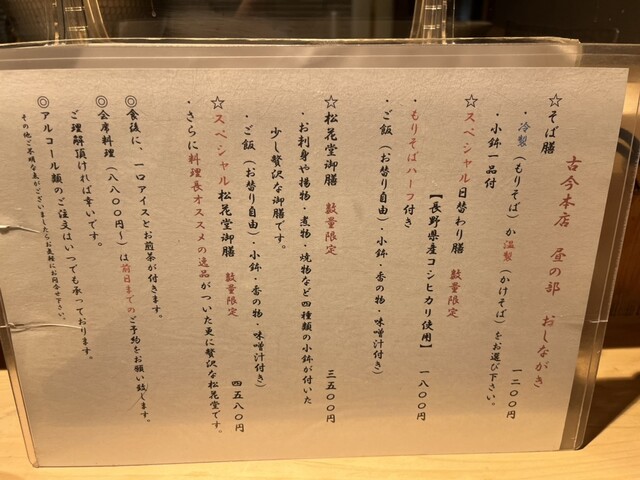 古今本店　昼の部　おしながき
☆そば膳　一二〇〇円
・冷製（もりそば）か温製（かけそば）をお選び下さい。
・小鉢一品付
☆スペシャル日替わり膳　数量限定　一八〇〇円
【長野県産コシヒカリ使用】
・もりそばハーフ付き
・ご飯（お替り自由）・小鉢・香の物・味噌汁付き）
☆松花堂御膳　数量限定　三五〇〇円
・お刺身や揚物・煮物・焼物など四種類の小鉢が付いた
少し贅沢な御膳です。
・ご飯（お替り自由）・小鉢・香の物・味噌汁付き）
☆スペシャル松花堂御膳　数量限定　四五八〇円
・さらに料理長オススメの逸品がついた更に贅沢な松花堂です。
◎食後に、一口アイスとお煎茶が付きます。
◎会席料理（八八〇〇円～）は前日までのご予約をお願い致します。
ご理解頂ければ幸いです。
◎アルコール類のご注文はいつでも承っております。
その他ご不明な点がございましたらお気軽にお問合せ下さい。